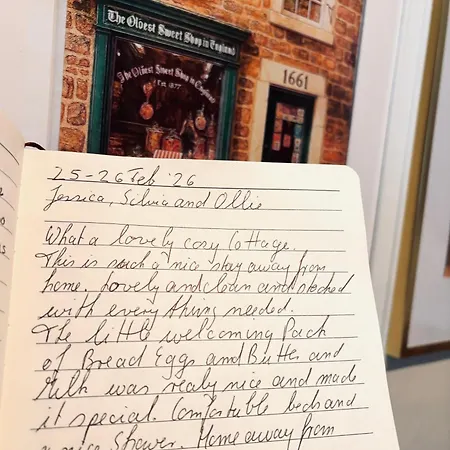 The Oldest Sweet Shop in England
The Oldest Sweet Shop in England
Est. 1827
1661
25-26 Feb '26
Jessica, Silvia and Ollie
What a lovely cosy Cottage.
This is such a nice stay away from
home. Lovely and clean and stocked
with everything needed.
The little welcoming Pack
of Bread Eggs and Butter and
Milk was realy nice and made
it special. Comfortable beds and
a nice shower. Home away from